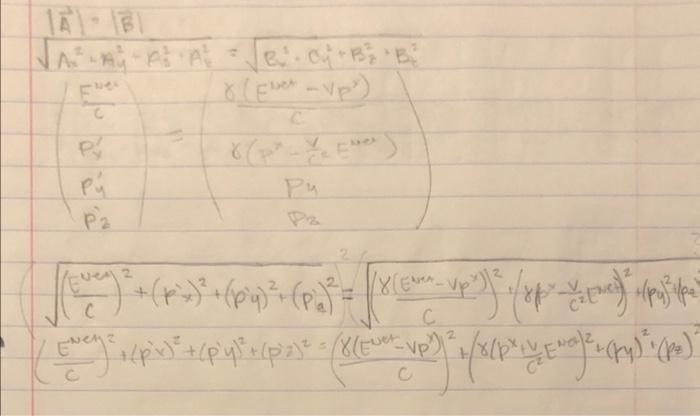 |A⃗| = |B⃗|
√(Ax² + Ay² + Az² + At²) = √(Bx² + By² + Bz² + Bt²)
(E^net/c) = (γ(E^net - Vp^x)/c)
p'x γ(p^x - V/c² E^net)
p'y py
p'z pz
(√((E^net/c)² + (p'x)² + (p'y)² + (p'z)²))² = √((γ(E^net - Vp^x)/c)² + (γ(p^x - V/c² E^net))² + (py)² + (pz
(E^net/c)² + (p'x)² + (p'y)² + (p'z)² = (γ(E^net - Vp^x)/c)² + (γ(p^x + V/c² E^net)² + (py)² + (pz)²